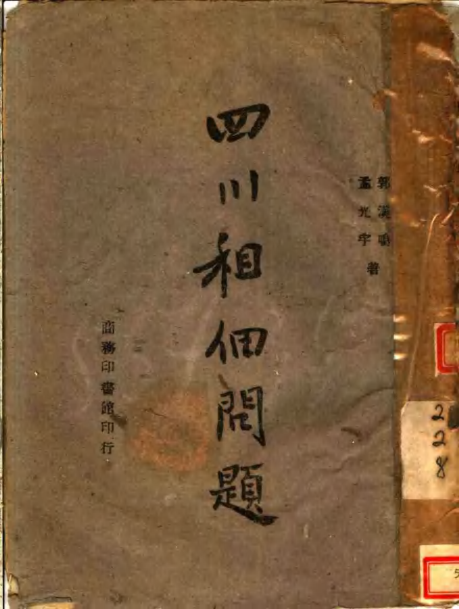 郭漢鳴
孟光宇
著
四川租佃問題
商務印書館印行
228
5